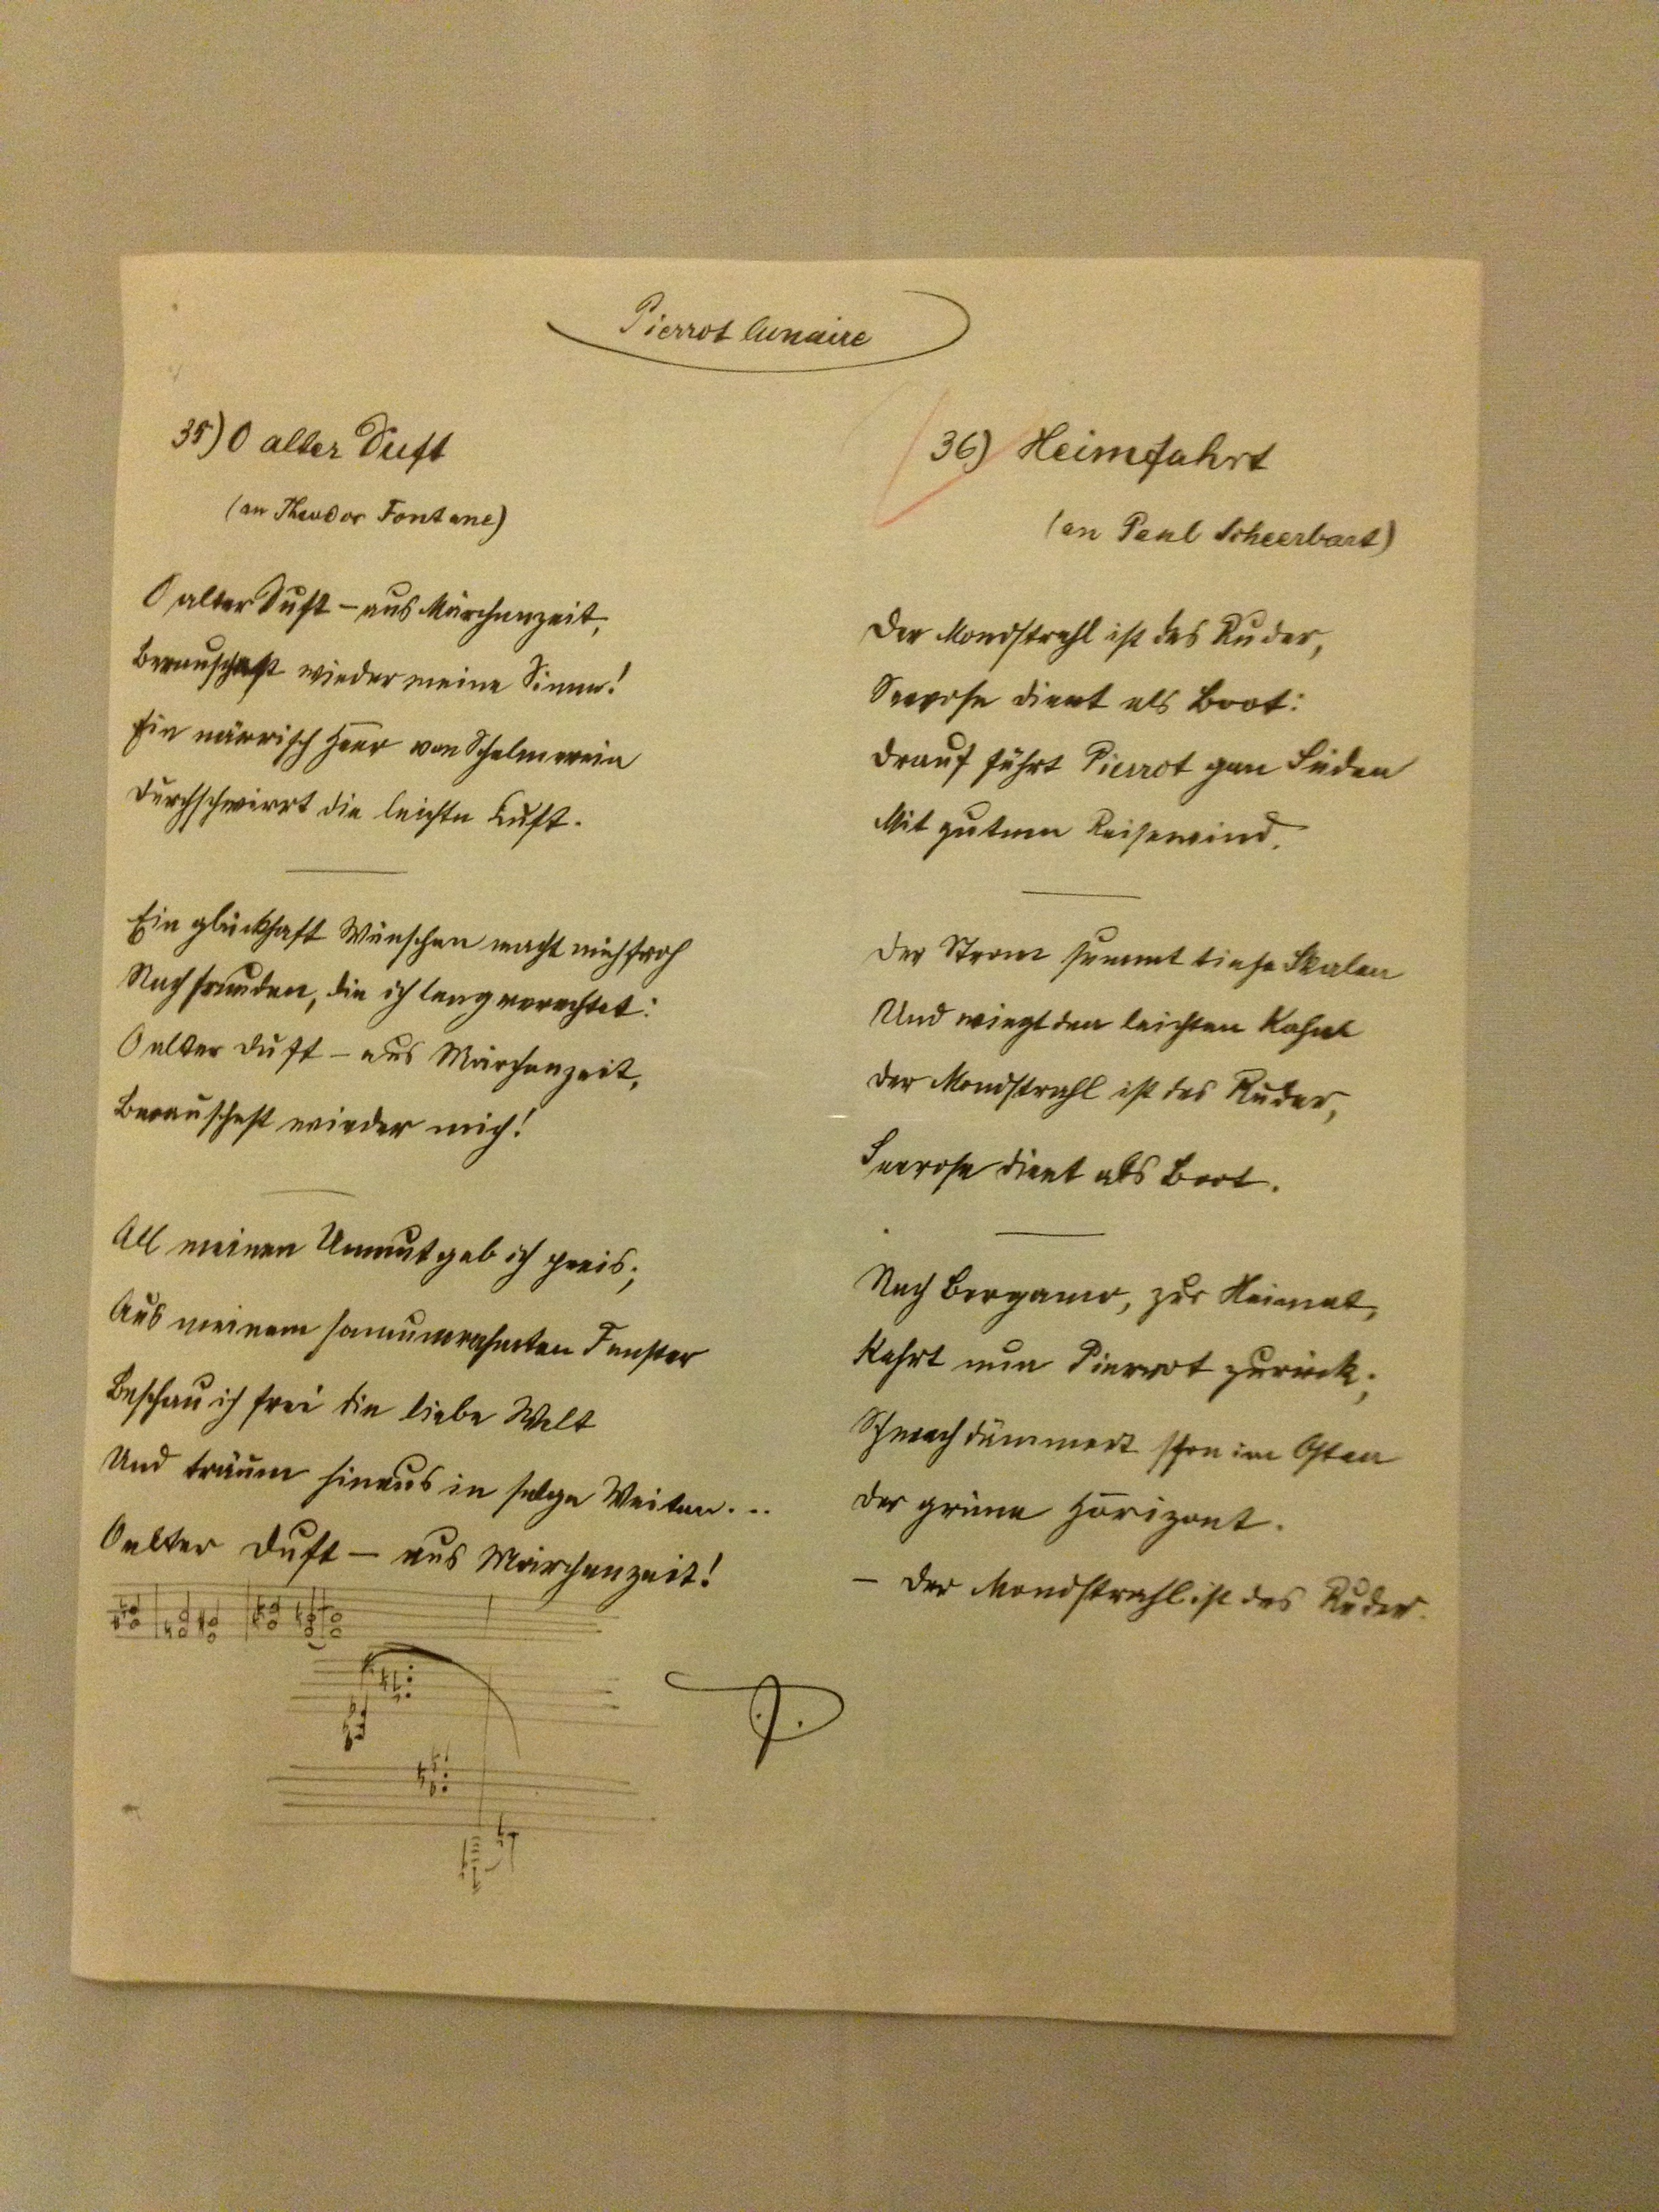 Pierrot lunaire
35) O alter Duft
(an Theodor Fontane)
O alter Duft – aus Märchenzeit,
Berauschest wieder meine Sinne!
Ein närrisch Heer von Schelmerein
Durchschwirrt die leichte Luft.
Ein glückhaft Wünschen macht mich froh
Nach Freuden, die ich lang verachtet:
O alter Duft – aus Märchenzeit,
Berauschest wieder mich!
All meinen Unmut geb ich preis;
Aus meinem sonnumrahmten Fenster
Beschau ich frei die liebe Welt
Und träum hinaus in selge Weiten...
O alter Duft – aus Märchenzeit!
36) Heimfahrt
(an Paul Scheerbart)
Der Mondstrahl ist das Ruder,
Seerose dient als Boot:
Drauf fährt Pierrot gen Süden
Mit gutem Reisewind.
Der Strom summt tiefe Skalen
Und wiegt den leichten Kahn
Der Mondstrahl ist das Ruder,
Seerose dient als Boot.
Nach Bergamo, zur Heimat,
Kehrt nun Pierrot zurück;
Schwach dämmert schon im Osten
Der grüne Horizont.
– Der Mondstrahl ist das Ruder.